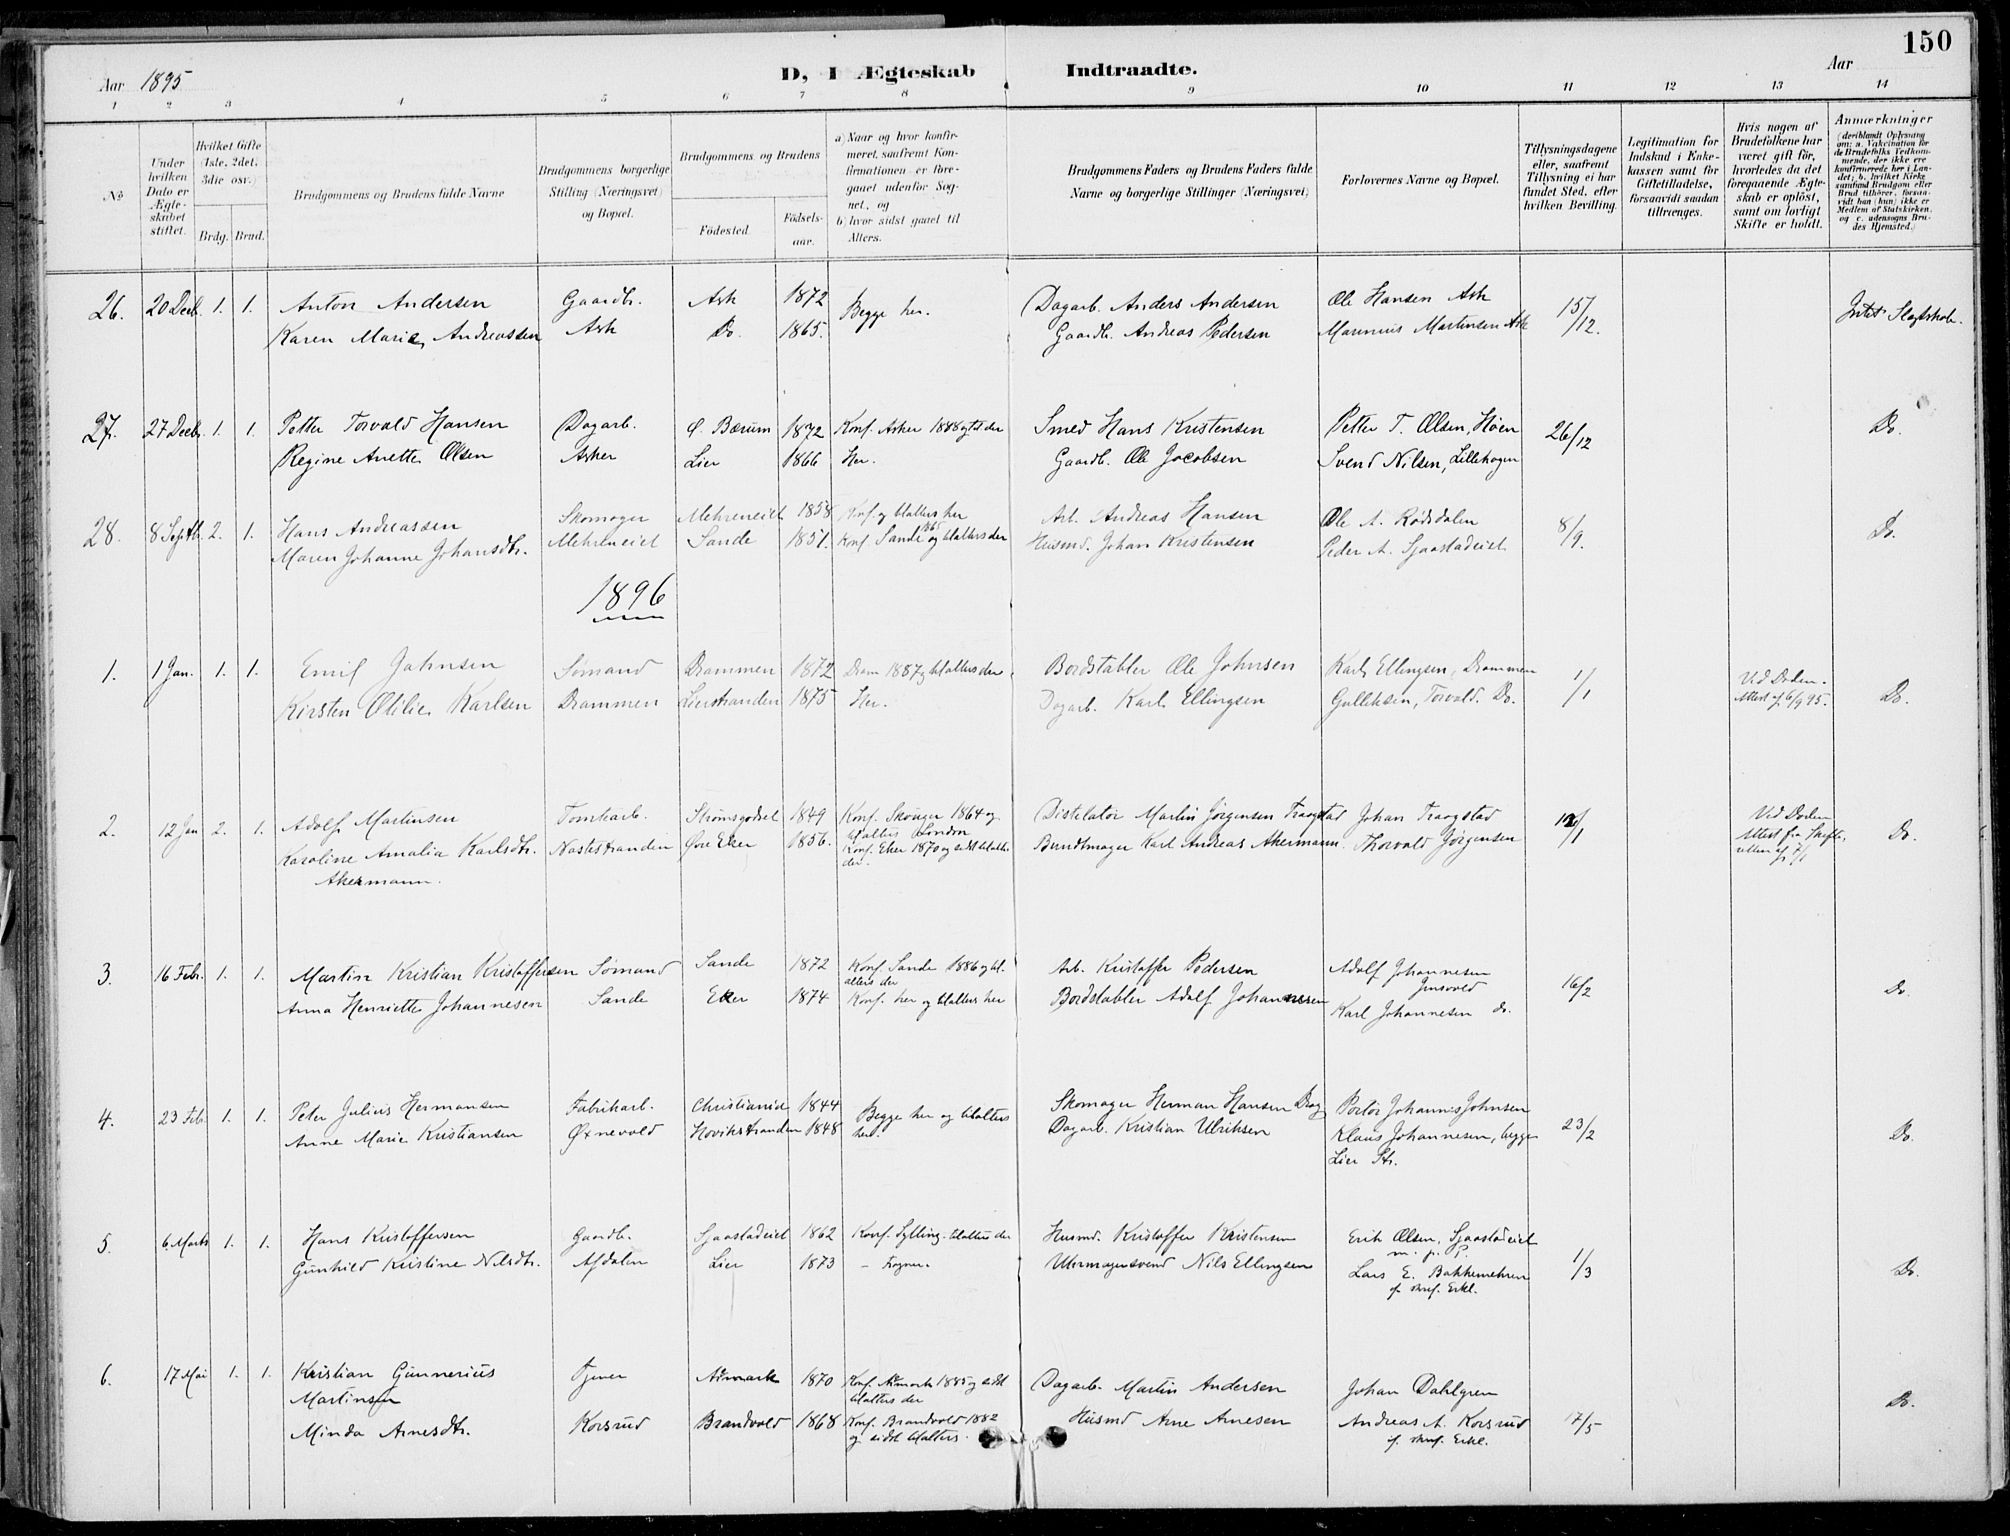 150
Aar 1895
D, I Ægteskab Indtraadte.
Aar
1 2 3 4 5 6 7 8 9 10 11 12 13 14
No
Under hvilken Dato er Ægteskabet stiftet.
Hvilket Gifte (1ste, 2det, 3die osv.)
Brdg. Brud.
Brudgommens og Brudens fulde Navne
Brudgommens borgerlige Stilling (Næringsvei) og Bopæl.
Brudgommens og Brudens
Fødested.
Fødselsaar.
a) Naar og hvor konfirmeret, saafremt Konfirmationen er foregaaet udenfor Sognet, og
b) hvor sidst gaaet til Alters.
Brudgommens Faders og Brudens Faders fulde Navne og borgerlige Stillinger (Næringsvei)
Forlovernes Navne og Bopæl.
Tillysningsdagene eller, saafremt Tillysning ei har fundet Sted, efter hvilken Bevilling.
Legitimation for Indskud i Enkekassen samt for Giftetilladelse, forsaavidt saadan tiltrænges.
Hvis nogen af Brudefolkene har været gift før, hvorledes da det foregaaende Ægteskab er opløst, samt om lovligt Skifte er holdt.
Anmærkninger (deriblandt Oplysning om: a. Vakcination for de Brudefolks Vedkommende, der ikke ere konfirmerede her i Landet; b. hvilket Kirkesamfund Brudgom eller Brud tilhører, forsaavidt han (hun) ikke er Medlem af Statskirken, og c. udensogns Brudes Hjemsted.)
26. 20 Decb. 1. 1. Anton Andersen Gaardbr. Ask 1872 Begge her. Dagarb. Anders Andersen Ole Hansen Ask 15/12. Intet Slegtskab.
Karen Marie Andreassen Ask Do. 1865. Gaardb. Andreas Pedersen Marinius Martinsen Ask
27. 27 Decb. 1. 1. Petter Torvald Hansen Dagarb. Ø. Bærum 1872 Konf. Asker 1888 Smed Hans Kristensen Petter T. Olsen, Høen 26/12 Do.
Regine Anette Olsen Asker Lier 1866 Her. Gaardb. Ole Jacobsen Svend Nilsen, Lillehagen
28. 8 Septb. 2. 1. Hans Andreassen Skomager Mehreneiet 1858 Konf. og tilalters her Arb. Andreas Hansen Ole A. Rødsdalen 8/9. Do.
Maren Johanne Johansdtr. Mehreneiet Sande 1851. Konf. Sande 1865 og tilalters der Husmd. Johan Kristensen Peder A. Sjaastadeiet
1896
1. 1 Jan. 1. 1. Emil Johnsen Sømand Drammen 1872 Dram. 1887 og tilalters der. Bordstabler Ole Johnsen Karl Ellingsen, Drammen 1/1 Ved Døden. Do.
Kirsten Otilie Karlsen Drammen Lierstranden 1875 Her. Dagarb. Karl Ellingsen Gulliksen, Torvald. Do. Attest af 6/9 95.
2. 12 Jan 2. 1. Adolf Martinsen Tomtearb. Strømsgodset 1849 Konf. Skouger 1864 og tilalters London Distelatør Martin Jørgensen Traagstad Johan Traagstad 12/1 Ved Døden Do.
Karoline Amalia Karlsdtr. Nøstestranden Øvre Eker 1856. Konf. Eker 1870 og sidst tilalters der. Bundtmager Karl Andreas Akermann. Thorvald Jørgensen Attest fra Skifteretten af 7/1
Akermann.
3. 16 Febr. 1. 1. Martin Kristian Kristoffersen Sømand Sande 1872 Konf. Sande 1886 og tilalters der Arb. Kristoffer Pedersen Adolf Johannesen 16/2 Do.
Anna Henriette Johannesen Sande Eker 1874 Konf. her og tilalters her Bordstabler Adolf Johannesen Karl Johannesen Do.
4. 23 Feb. 1. 1. Peter Julius Hermansen Fabrikarb. Christiania 1844 Begge her og tilalters her. Skomager Herman Hansen Drag Portør Johannis Johnsen 23/2 Do.
Anne Marie Kristiansen Øxnevold Hovikstranden 1848 Dagarb. Kristian Ulriksen Klaus Johannesen, begge
Lier Str.
5. 6 Marts 1. 1. Hans Kristoffersen Gaardb. Sjaastadeiet 1862 Konf. Sylling. tilalters der Husmd. Kristoffer Kristensen Erik Olsen, Sjaastadeiet 1/3 Do.
m. p. P.
Gunhild Kristine Nilsdtr. Afdalen Lier 1873 – Frogner. Uhrmagersvend Nils Ellingsen Lars E. Bakkemehren
if. skrf. Erkl.
6. 17 Mai 1. 1. Kristian Gunnerius Tjener Aamark 1870 Konf. Aamark 1885 og sidst tilalters der Dagarb. Martin Andersen Johan Dahlgren 17/5 Do.
Martinsen
Minda Arnesdtr. Korsrud Brandvold 1868 Konf. Brandvold 1882 og sidst tilalters. Husmd Arne Arnesen Andreas A. Korsrud
if. skrf. Erkl.